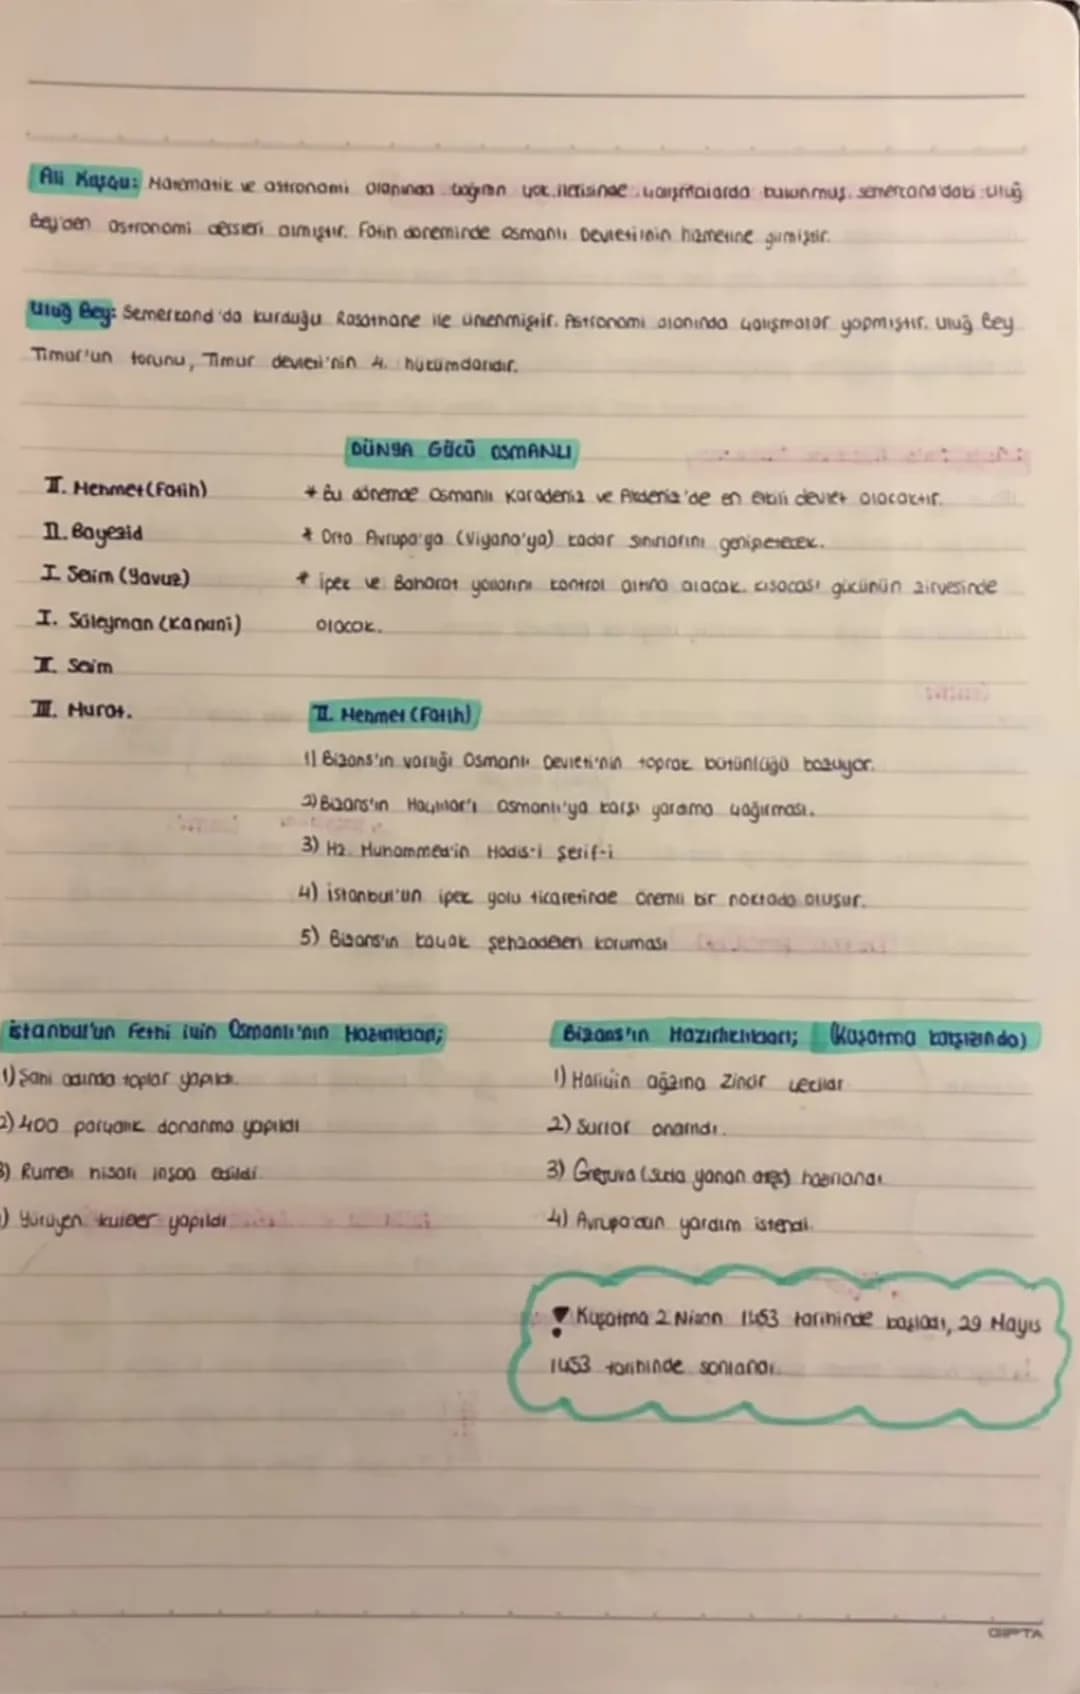 Ali Kuşçu: Matematik ve astronomi alanında çağının çok ilerisinde çalışmalarda bulunmuş. Semerkand'daki Uluğ
Bey'den Astronomi dersleri almıştır. Fatih döneminde Osmanlı Devleti'nin hizmetine girmiştir.
Uluğ Bey: Semerkand'da kurduğu Rasathane ile ünlenmiştir. Astronomi alanında çalışmalar yapmıştır. Uluğ Bey
Timur'un torunu, Timur devleti'nin 4. hükümdarıdır.
DÜNYA GÜCÜ OSMANLI
II. Mehmet (Fatih)
II. Bayezid
I Selim (Yavuz)
I. Süleyman (Kanuni)
II. Selim
III. Murat.
* Bu dönemde Osmanlı Karadeniz ve Akdeniz'de en etkili devlet olacaktır.
* Orta Avrupa'ya (Viyana'ya) kadar sınırlarını genişletecek.
* İpek ve Baharat yollarını kontrol altına alacak. kısacası gücünün zirvesinde
olacak.
II. Mehmet (Fatih)
1) Bizans'ın varlığı Osmanlı Devleti'nin toprak bütünlüğü bozuyor.
2) Bizans'ın Haçlılar'ı Osmanlı'ya karşı yarama çağırması.
3) Hz. Muhammed'in Hadis-i Şerif-i
4) İstanbul'un ipek yolu ticaretinde önemli bir noktada oluşur.
5) Bizans'ın kaçak şehzadeleri koruması
İstanbul'un Fethi için Osmanlı'nın Hazırlıkları;
1) Şahi adında toplar yapıldı.
2) 400 parçalık donanma yapıldı
3) Rumeli hisarı inşaa edildi.
) Yürüyen kuleler yapıldı
Bizans'ın Hazırlıkları; (Kuşatma karşısında)
1) Haliçin ağzına zincir çektiler
2) Surlar onarıldı.
3) Grejuva (suda yanan ateş) hazırlandı
4) Avrupa'dan yardım istendi.
! Kuşatma 2 Nisan 1453 tarihinde başladı, 29 Mayıs
1453 tarihinde sonlandı.
GIPTA